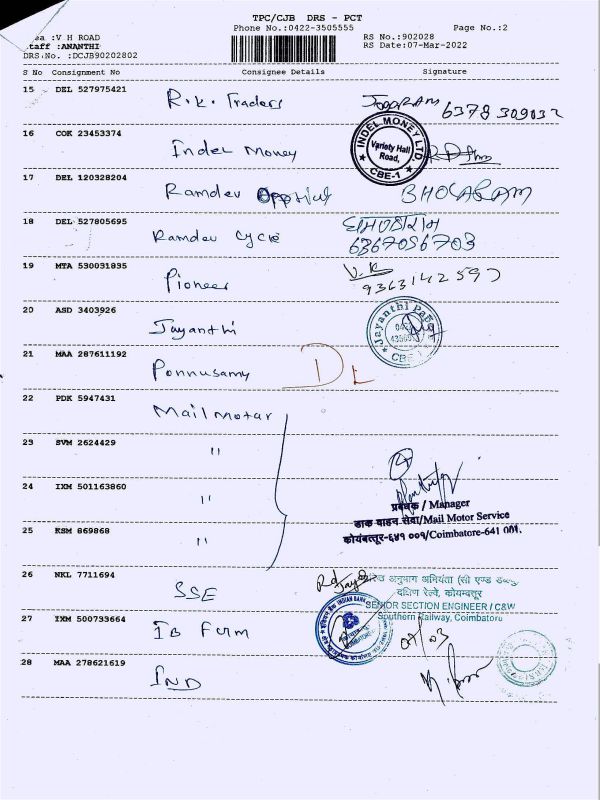 TPC/CJB DRS - PCT
Phone No.:0422-3505555 Page No.:2
:V H ROAD RS No.:902028
taff :ANANTHI RS Date:07-Mar-2022
DRS.No. :DCJB90202802
S No Consignment No Consignee Details Signature
15 DEL 527975421 R.K. Traders JOGARAM 6378309032
16 COK 23453374 Indel Money
INDEL MONEY LTD
Variety Hall
Road,
CBE-1
17 DEL 120328204 Ramdev Opptical BHOLARAM
18 DEL 527805695 Ramdev Cycle 6367056703
19 MTA 530031835 Pioneer V.R
9363142597
20 ASD 3403926 Jayanthi
Jayanthi
CBE-1
21 MAA 287611192 Ponnusamy DL
22 PDK 5947431 Mail Motar
23 SVM 2624429 "
24 IXM 501163860 "
प्रबंधक / Manager
डाक वाहन सेवा/Mail Motor Service
कोयंबत्तूर-६४१ ००१/Coimbatore-641 001.
25 KSM 869868 "
26 NKL 7711694 SSE
अनुभाग अभियंता (सी एण्ड
दक्षिण रेल्वे, कोयम्बत्तूर
SENIOR SECTION ENGINEER / C&W
Southern Railway, Coimbatore
27 IXM 500733664 IB Form 07/03
INDIAN BANK
28 MAA 278621619 IND